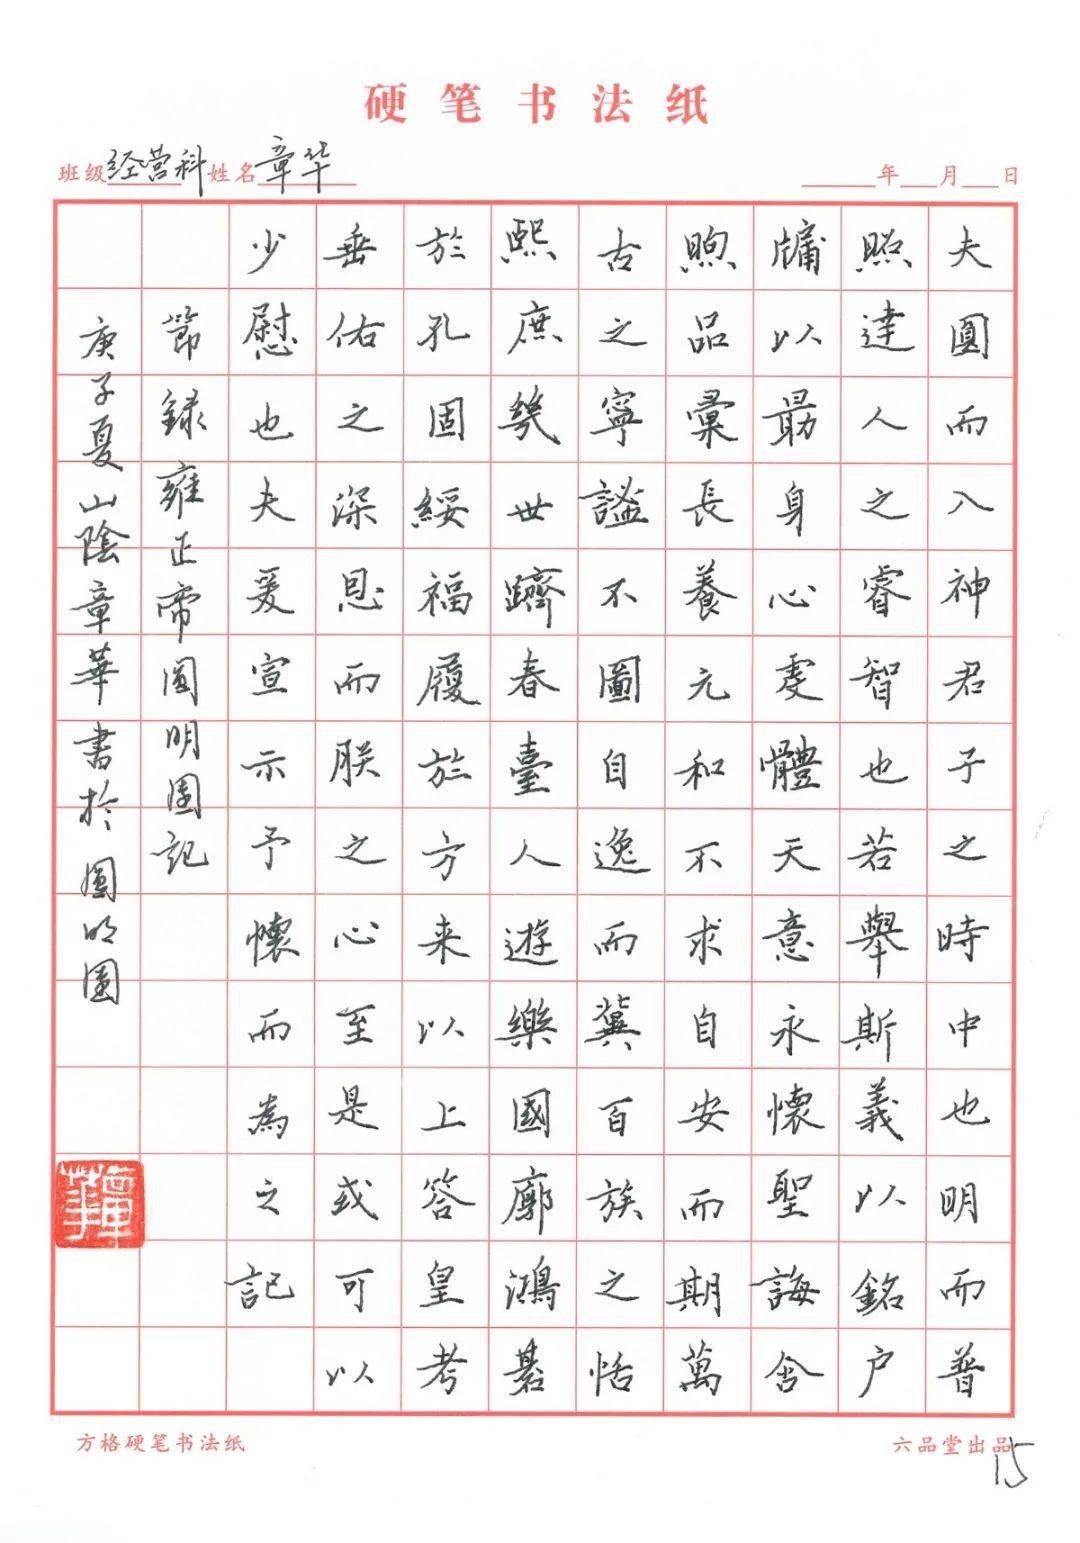 硬笔书法纸
班级 经营科 姓名 章华 年 月 日
夫圓而入神君子之時中也明而普
照達人之睿智也若舉斯義以銘户
牖以勗身心虔體天意永懷聖誨含
煦品彙長養元和不求自安而期萬
古之寧謐不圖自逸而冀百族之恬
熙庶幾世躋春臺人遊樂國廓鴻基
於孔固綏福履於方来以上答皇考
垂佑之深恩而朕之心至是或可以
少慰也夫爰宣示予懷而為之記
節録雍正帝圓明園記
庚子夏山陰章華書於圓明園
章華
方格硬笔书法纸
六品堂出品
15